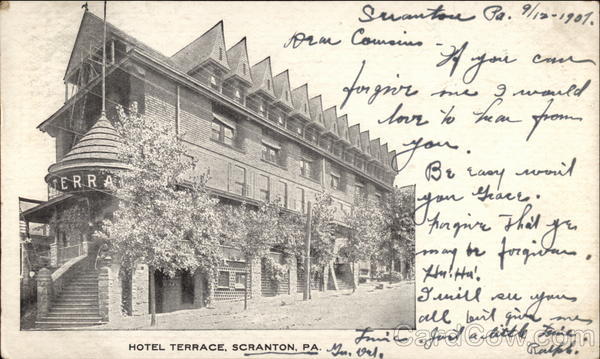 Scranton Pa. 9/12-1907.
Dear Cousins -
If you can
forgive me I would
love to hear from
you.
Be easy won't
you Grace.
Forgive that ye
may be forgiven.
Ha Ha!
I will see you
all but give me
Time Just a little Time.
Ralph.
TERRA
HOTEL TERRACE, SCRANTON, PA.
CardCow.com